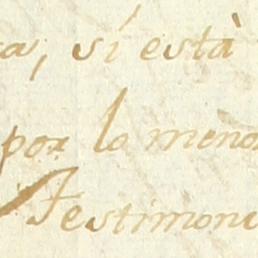 a, sí està
por lo meno
Testimoni